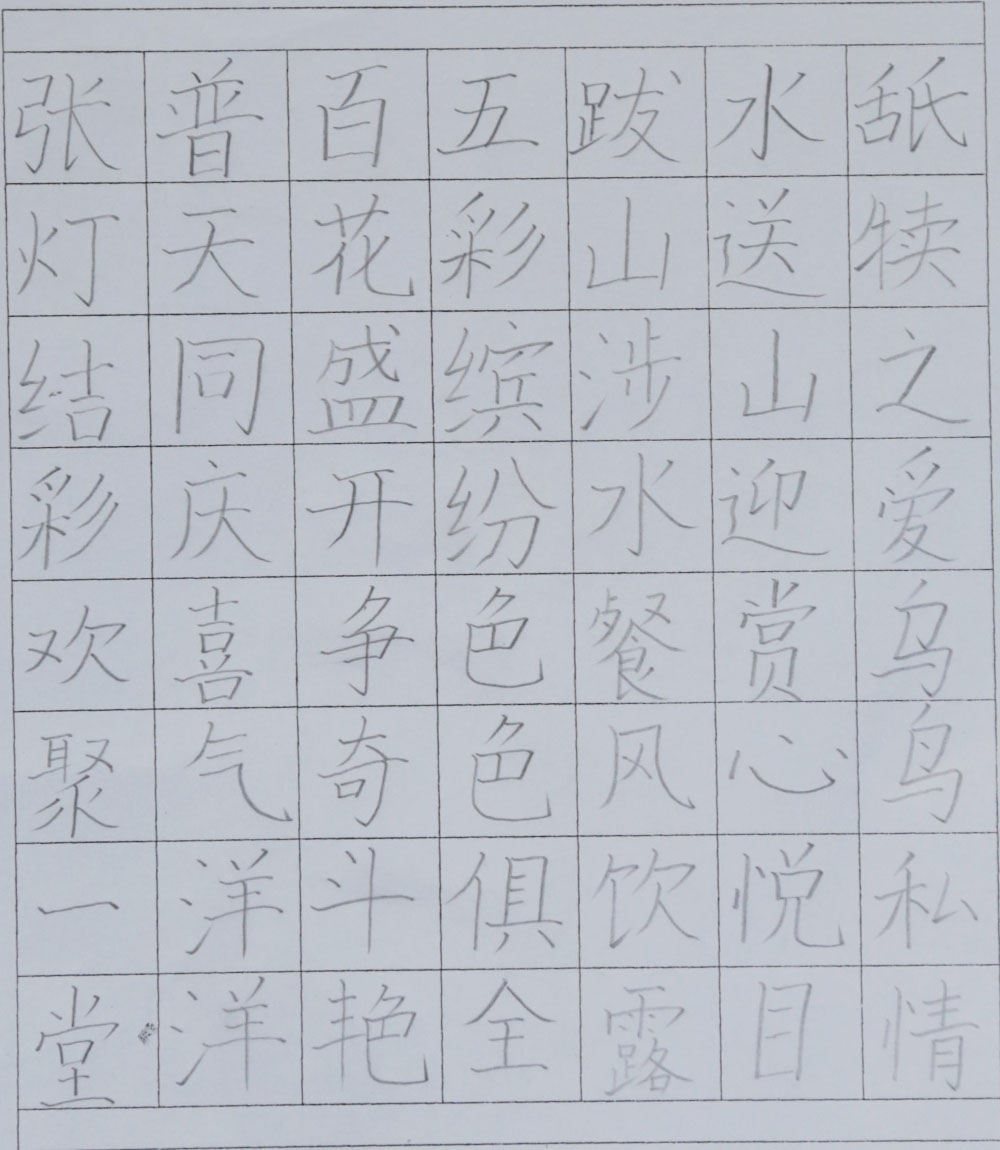 张灯结彩欢聚一堂
普天同庆喜气洋洋
百花盛开争奇斗艳
五彩缤纷色色俱全
跋山涉水餐风饮露
水送山迎赏心悦目
舐犊之爱乌鸟私情